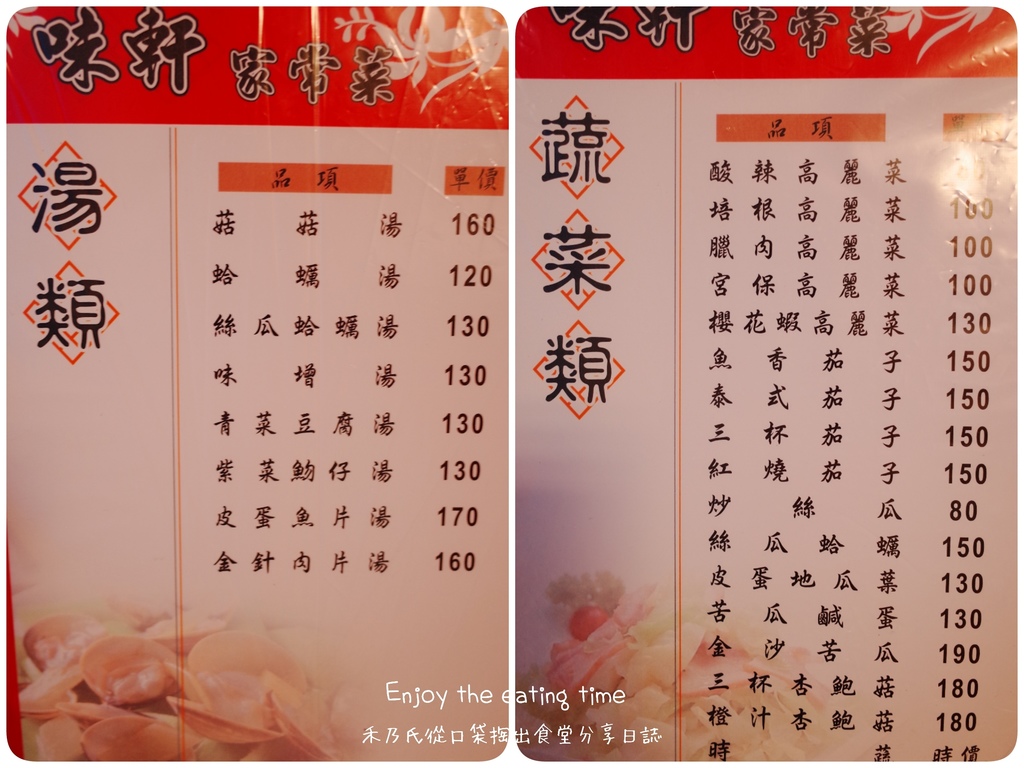 味軒 家常菜
湯類
品項 單價
菇菇湯 160
蛤蠣湯 120
絲瓜蛤蠣湯 130
味增湯 130
青菜豆腐湯 130
紫菜魩仔湯 130
皮蛋魚片湯 170
金針肉片湯 160
味軒 家常菜
蔬菜類
品項 單價
酸辣高麗菜
培根高麗菜 100
臘肉高麗菜 100
宮保高麗菜 100
櫻花蝦高麗菜 130
魚香茄子 150
泰式茄子 150
三杯茄子 150
紅燒茄子 150
炒絲瓜 80
絲瓜蛤蠣 150
皮蛋地瓜葉 130
苦瓜鹹蛋 130
金沙苦瓜 190
三杯杏鮑菇 180
橙汁杏鮑菇 180
時蔬 時價
Enjoy the eating time
禾乃氏從口袋掏出食堂分享日誌